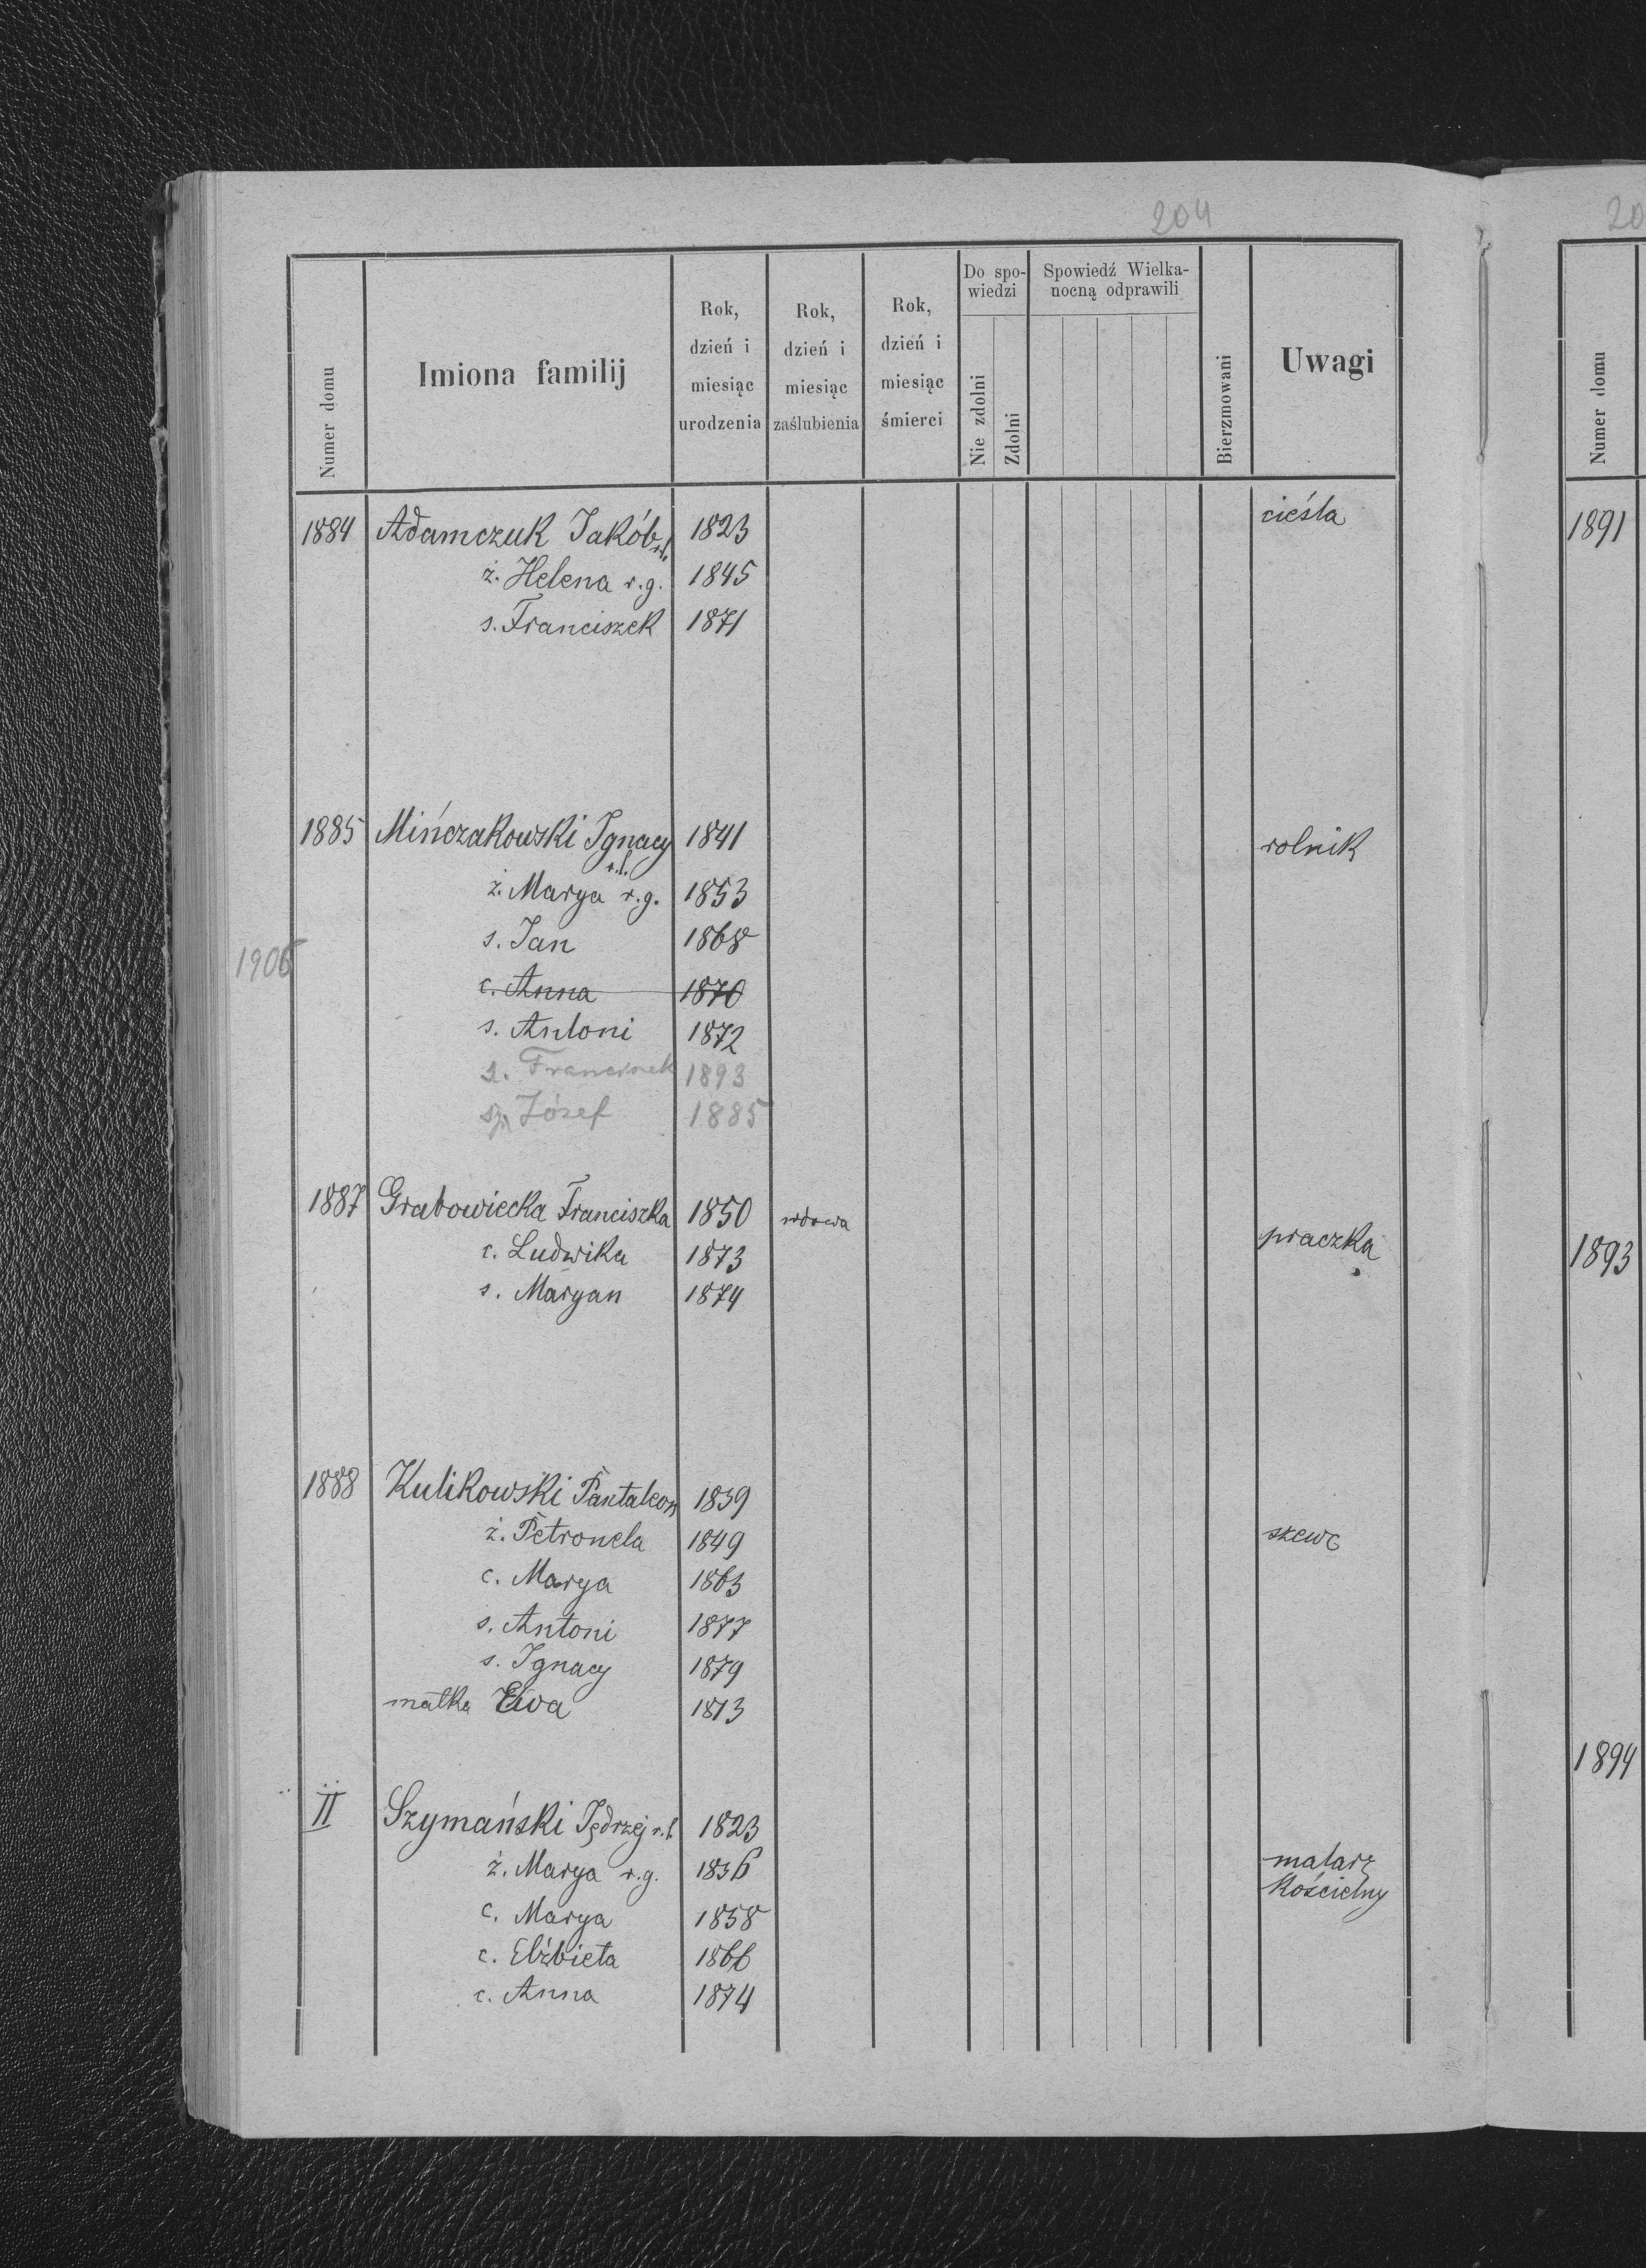 204
20
Numer domu
Imiona familij
Rok, dzień i miesiąc urodzenia
Rok, dzień i miesiąc zaślubienia
Rok, dzień i miesiąc śmierci
Do spo-wiedzi
Nie zdolni
Zdolni
Spowiedź Wielka-nocną odprawili
Bierzmowani
Uwagi
Numer domu
1884 Adamczuk Jakób r.l. 1823 cieśla
ż. Helena r.g. 1845
s. Franciszek 1871
1885 Mińczakowski Ignacy r.l. 1841 rolnik
ż. Marya r.g. 1853
s. Jan 1868
1906
c. Anna 1870
s. Antoni 1872
s. Franciszek 1893
Józef 1885
1887 Grabowiecka Franciszka 1850 wdowa praczka
c. Ludwika 1873
s. Maryan 1874
1888 Kulikowski Pantaleon 1839
ż. Petronela 1849 szewc
c. Marya 1863
s. Antoni 1877
s. Ignacy 1879
matka Ewa 1813
II Szymański Jędrzej r.l. 1823
ż. Marya r.g. 1836 malarz
kościelny
c. Marya 1858
c. Elżbieta 1866
c. Anna 1874
1891
1893
1894